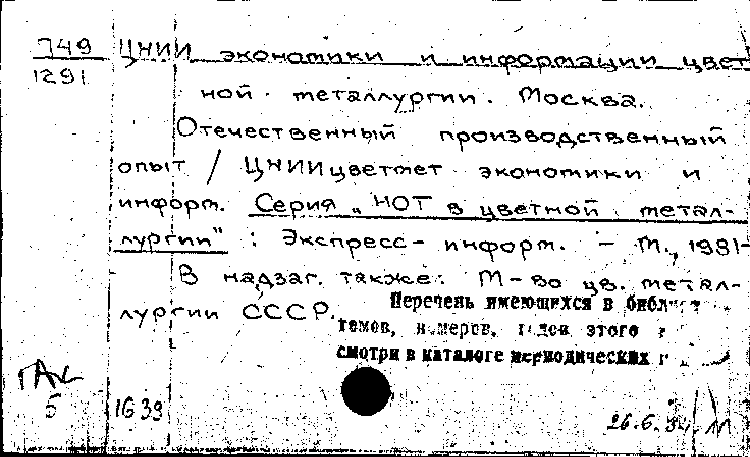 749 ЦНИИ экономики и информации цвет
1291 ной металлургии. Москва.
Отечественный производственный
опыт / ЦНИИцветмет экономики и
информ. Серия „НОТ в цветной метал-
лургии" : Экспресс-информ. – М., 1981-
В надзаг. также: М-во цв. метал-
лургии СССР.
Перечень имеющихся в
томов, номеров, годов этого
смотри в каталоге периодических
5 1639
26.6.